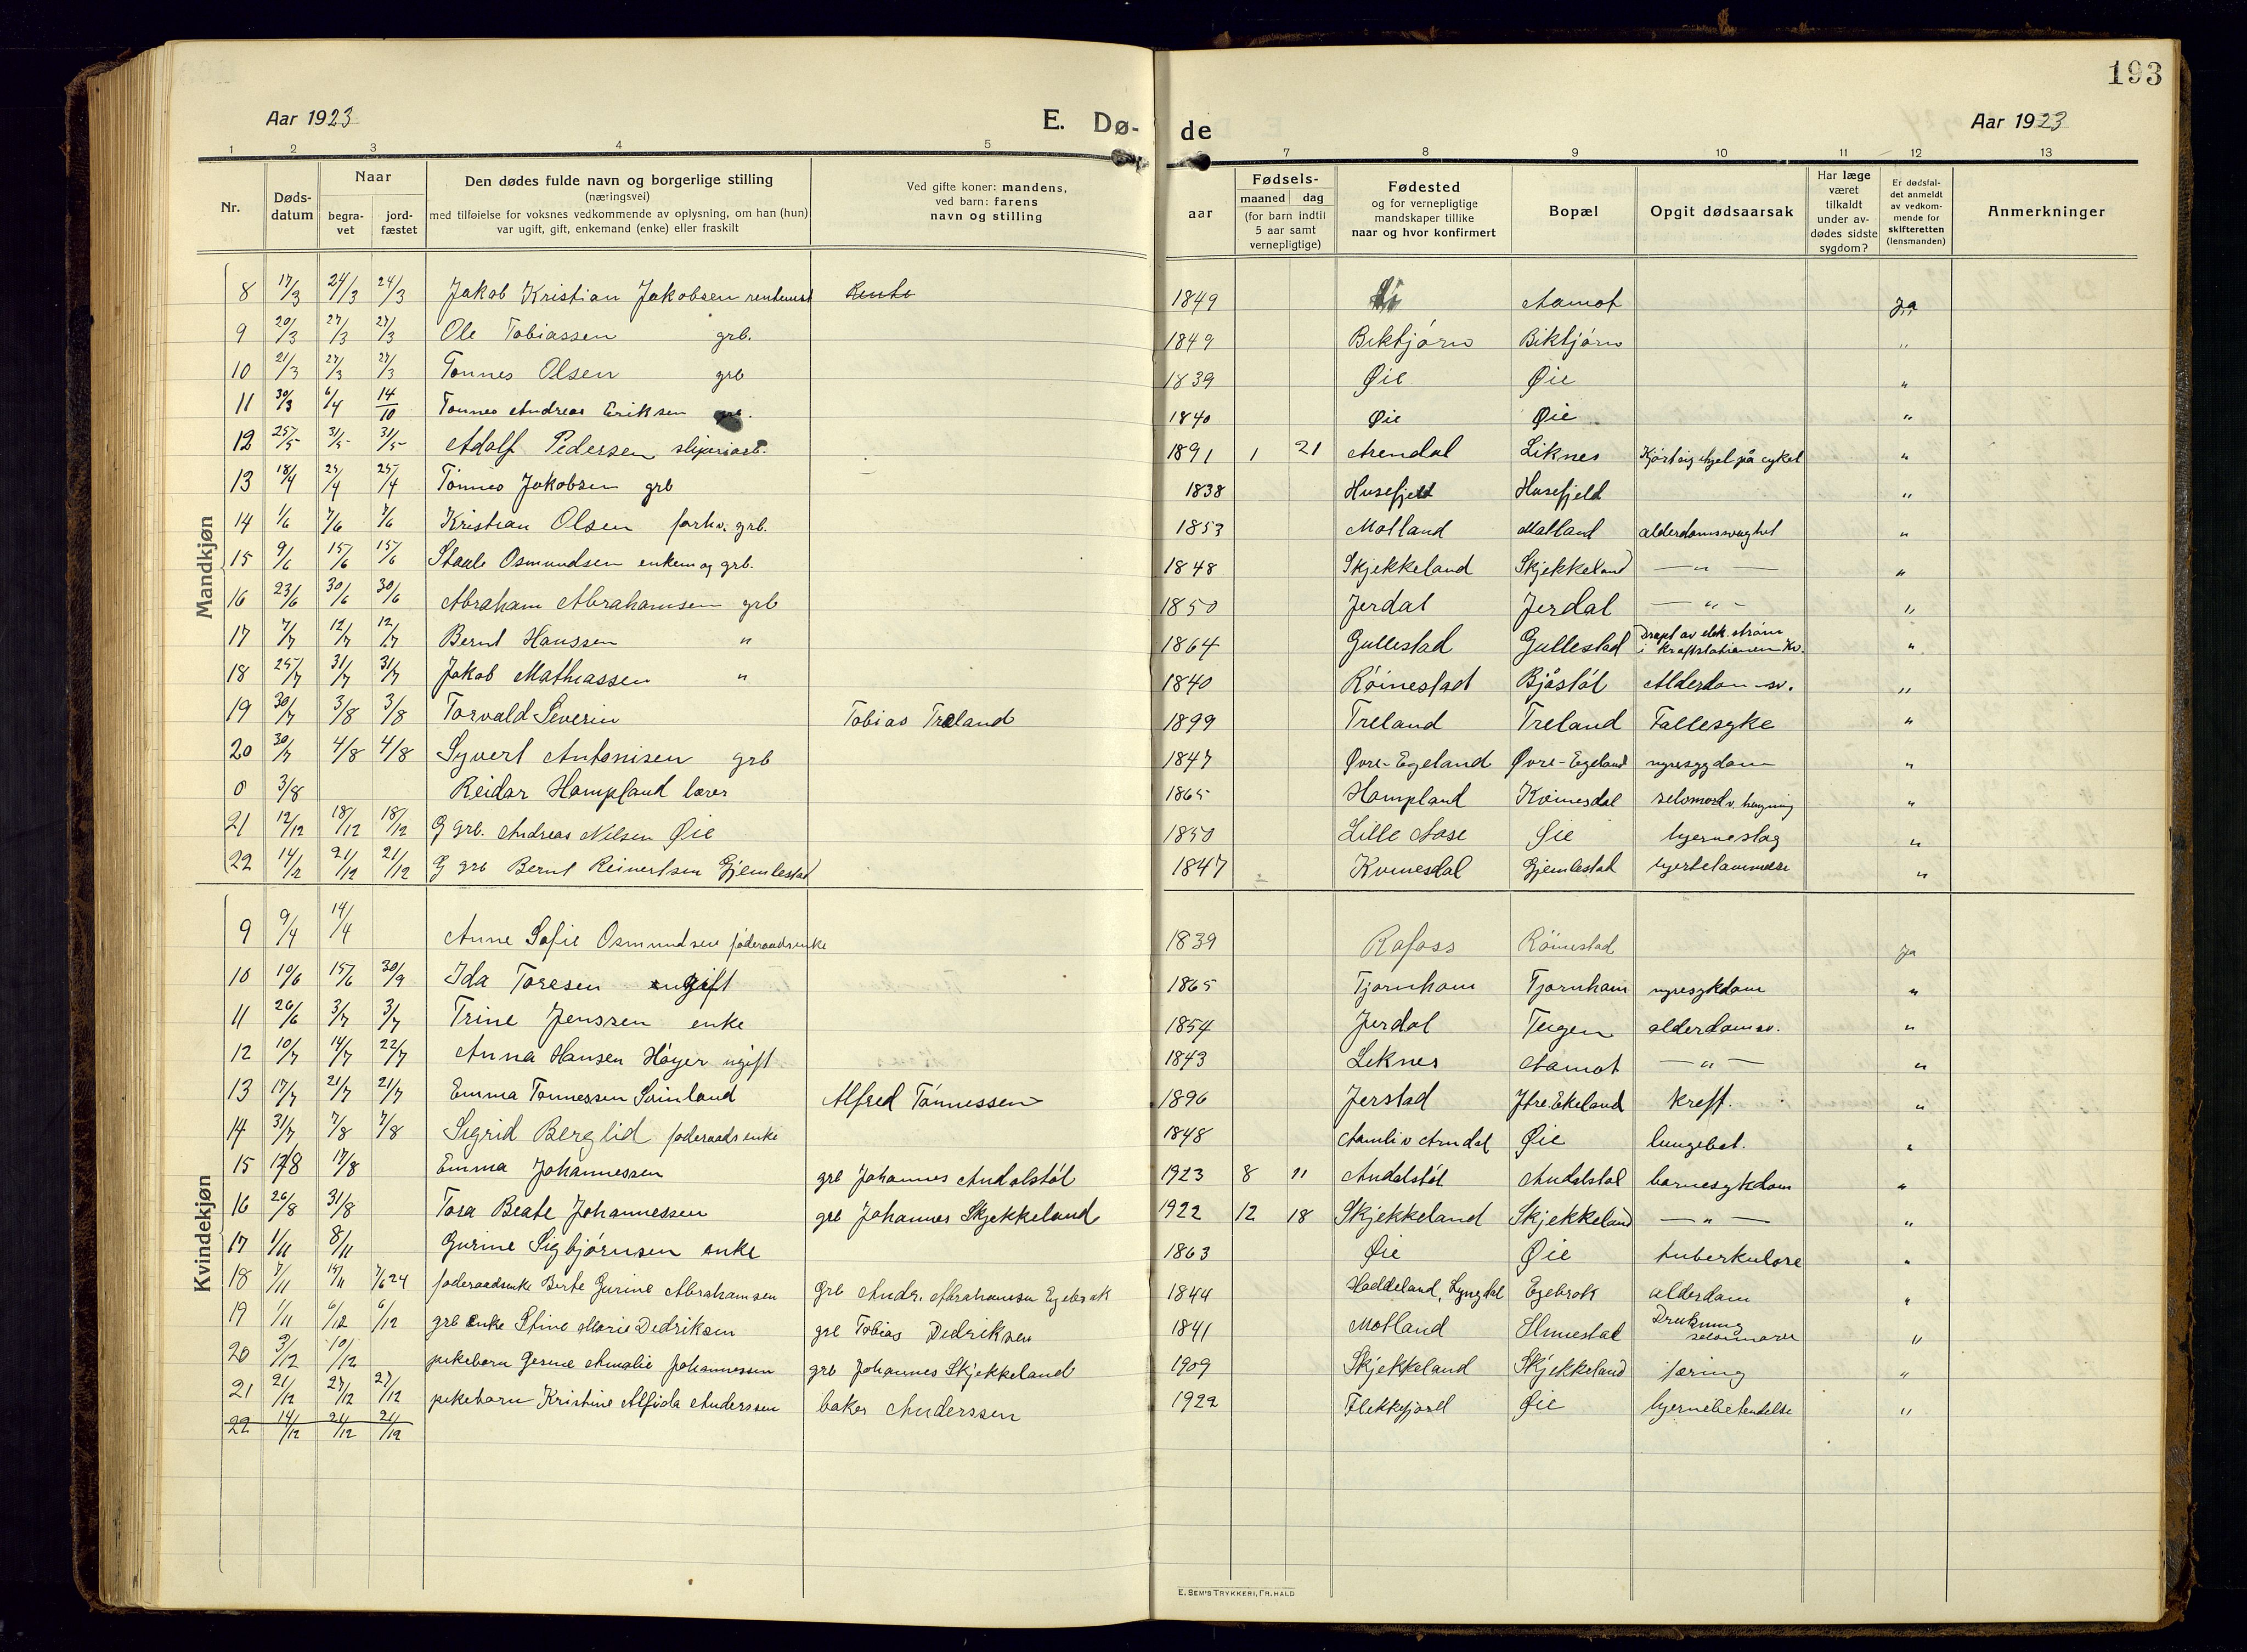 193
Aar 1923 E. Dø- de Aar 1923
1 2 3 4 5 7 8 9 10 11 12 13
Nr. Døds-datum Naar begra-vet jord-fæstet Den dødes fulde navn og borgerlige stilling (næringsvei) med tilføielse for voksnes vedkommende av oplysning, om han (hun) var ugift, gift, enkemand (enke) eller fraskilt Ved gifte koner: mandens, ved barn: farens navn og stilling aar Fødsels- maaned dag (for barn indtil 5 aar samt vernepligtige) Fødested og for vernepligtige mandskaper tillike naar og hvor konfirmert Bopæl Opgit dødsaarsak Har læge været tilkaldt under av-dødes sidste sygdom? Er dødsfal-det anmeldt av vedkom-mende for skifteretten (lensmanden) Anmerkninger
Mandkjøn
8 17/3 24/3 24/3 Jakob Kristian Jakobsen rentenist 1849 Aamot ja
9 20/3 27/3 27/3 Ole Tobiassen grb. 1849 Biktjørn Biktjørn "
10 21/3 27/3 27/3 Tønnes Olsen grb 1839 Øie Øie "
11 30/3 6/4 14/10 Tønnes Andreas Eriksen 1840 Øie Øie "
12 25/5 31/5 31/5 Adolf Pedersen sliperiarb. 1891 1 21 Arendal Liknes Kjørt sig ihjel på cykel "
13 18/4 25/4 25/4 Tønnes Jakobsen grb 1838 Husefjeld Husefjeld "
14 1/6 7/6 7/6 Kristian Olsen forhv. grb. 1853 Motland Motland alderdomssvaghet "
15 9/6 15/6 15/6 Staale Osmundsen enkem og grb. 1848 Skjekkeland Skjekkeland — " — "
16 23/6 30/6 30/6 Abraham Abrahamsen grb 1850 Jerdal Jerdal — " — "
17 7/7 12/7 12/7 Bernt Hanssen " 1864 Gullestad Gullestad Dræpt av elek. strøm i kraftstationen Kv. "
18 25/7 31/7 31/7 Jakob Mathiassen " 1840 Røinestad Bjåstøl Alderdom-sv. "
19 30/7 3/8 3/8 Torvald Severin Tobias Treland 1899 Treland Treland Fallesyke "
20 30/7 4/8 4/8 Syvert Antonisen grb 1847 Øvre-Egeland Øvre-Egeland nyresygdom "
0 3/8 Reidar Hompland lærer 1865 Hompland Kvinesdal selvmord v. hengning "
21 12/12 18/12 18/12 G grb. Andreas Nilsen Øie 1850 Lille Aase Øie hjerneslag "
22 14/12 21/12 21/12 G grb Bernt Reinertsen Gjemlestad 1847 Kvinesdal Gjemlestad hjertelammelse "
Kvindekjøn
9 9/4 14/4 Anne Sofie Osmundsen føderaadsenke 1839 Rafoss Røinestad ja
10 10/6 15/6 30/9 Ida Toresen ugift 1865 Tjørnhom Tjørnhom nyresykdom "
11 26/6 3/7 3/7 Trine Jenssen enke 1854 Jerdal Teigen alderdomsv. "
12 10/7 14/7 22/7 Anna Hansen Høyer ugift 1843 Liknes Aamot — " — "
13 17/7 21/7 21/7 Emma Tønnessen Sinland Alfred Tønnessen 1896 Jerstad Ytre Ekeland kreft. "
14 31/7 7/8 7/8 Sigrid Berglid føderaadsenke 1848 Aamli v Arndal Øie lungebet. "
15 12/8 17/8 Emma Johannessen grb Johannes Andalstøl 1923 8 11 Andalstøl Andalstøl barnesykdom "
16 26/8 31/8 Tora Beate Johannessen grb Johannes Skjekkeland 1922 12 18 Skjekkeland Skjekkeland — " — "
17 1/11 8/11 Gurine Sigbjørnsen enke 1863 Øie Øie tuberkulose "
18 7/11 15/11 7/6 24 føderaadsenke Berte Gurine Abrahamsen Grb Andr. Abrahamsen Egebrok 1844 Haddeland, Lyngdal Egebrok alderdom "
19 1/11 6/12 6/12 grb enke Stine Marie Dedriksen grb Tobias Dedriksen 1841 Motland Drukning selvmord "
20 3/12 10/12 pikebarn Gesine Amalie Johannessen grb Johannes Skjekkeland 1909 Skjekkeland Skjekkeland tæring "
21 21/12 27/12 27/12 pikebarn Kristine Alfida Anderssen baker Anderssen 1922 Flekkefjord Øie hjernebetendelse "
22 14/12 21/12 21/12
E. SEM'S TRYKKERI, FR.HALD